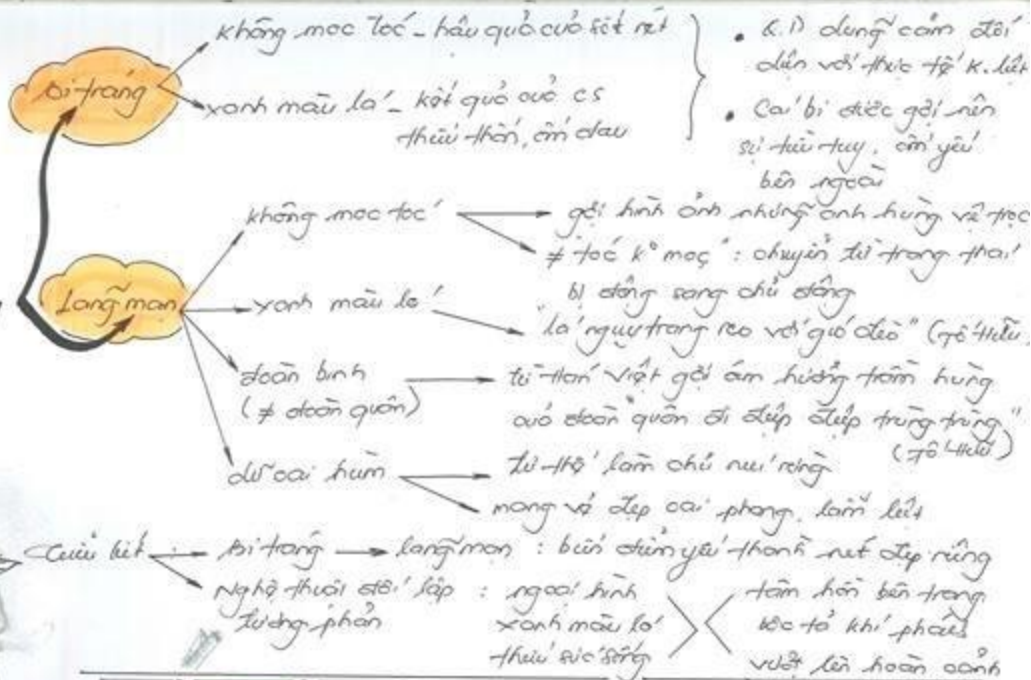 không mọc tóc - hậu quả của sốt rét
xanh màu lá - kết quả của cs
thiếu thốn, ốm đau
Bi tráng
• Q.D dũng cảm đối
diện với thực tế k.liệt
• Cái bi được gợi nên
sự tiều tụy, ốm yếu
bên ngoài
Lãng mạn
không mọc tóc
gợi hình ảnh những anh hùng vệ trọc
≠ "tóc k° mọc" : chuyển từ trạng thái
bị động sang chủ động
xanh màu lá
"lá ngụy trang reo với gió đèo" (Tố Hữu)
đoàn binh
(≠ đoàn quân)
từ Hán Việt gợi âm hưởng trầm hùng
của đoàn "quân đi điệp điệp trùng trùng"
(Tố Hữu)
dữ oai hùm
tư thế làm chủ núi rừng
mang vẻ đẹp oai phong, lẫm liệt
bi tráng → lãng mạn : biến điểm yếu thành nét đẹp riêng
Nghệ thuật đối lập : ngoại hình
tương phản
xanh màu lá
thiếu sức sống
tâm hồn bên trong
bộc tả khí phách
vượt lên hoàn cảnh